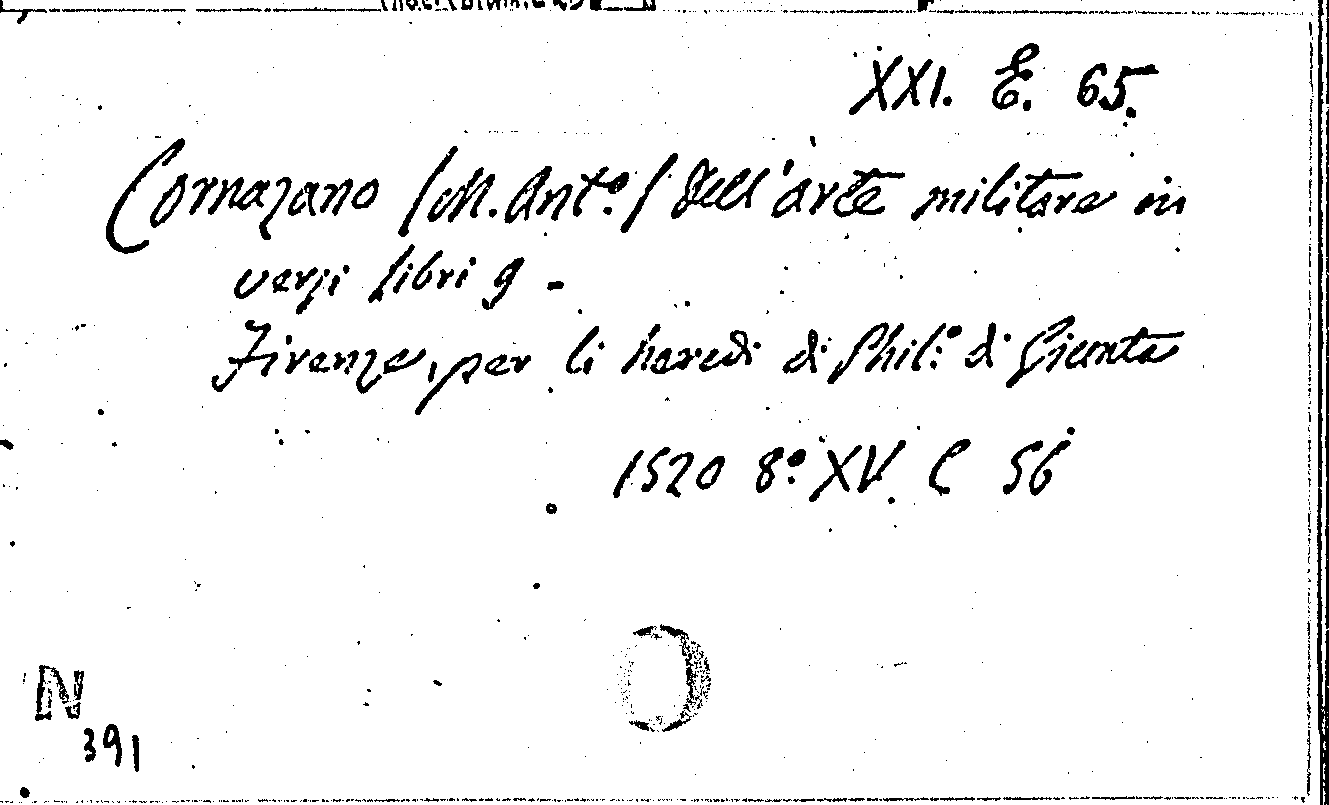 XXI. E. 65.
Cornazano /M. Ant.º/ Dell'arte militare in
versi libri 9 -
Firenze, per li heredi di Phil.º di Giunta
1520 8.º XV. C 56
N
391